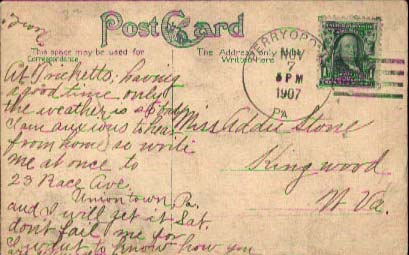 Post Card
This space may be used for
Correspondence
The Address only
Written Here
PERRYOPO
NOV
7
5 PM
1907
PA
At Pricketts, having
a good time only
the weather is so bad
I am anxious to hear
from home so write
me at once to
23 Race Ave.
Uniontown Pa.
and I will get it Sat.
don't fail me for
I want to know how you
Miss Addie Stone
Kingwood
W Va.